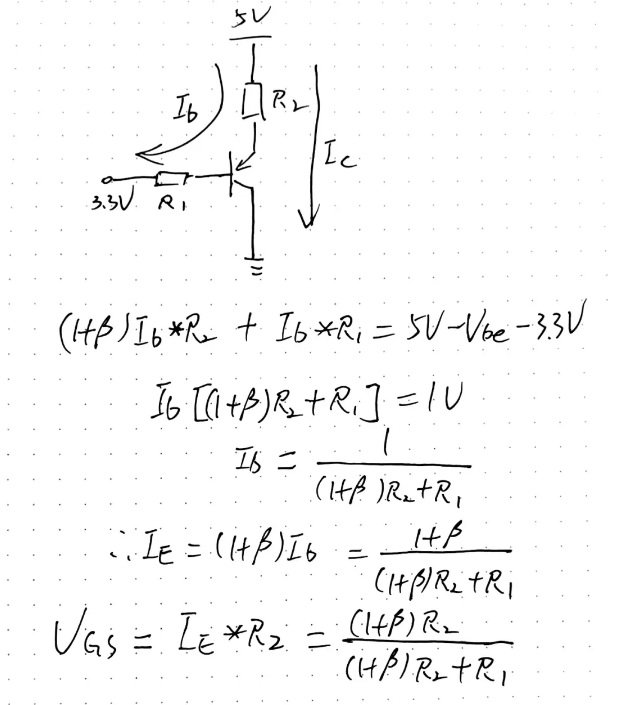 5V
Ib
R2
Ic
3.3V
R1
(1+β)Ib*R2 + Ib*R1 = 5V-Vbe-3.3V
Ib[(1+β)R2+R1] = 1V
Ib = 1/((1+β)R2+R1)
∴ IE = (1+β)Ib = (1+β)/((1+β)R2+R1)
UGS = IE*R2 = (1+β)R2/((1+β)R2+R1)